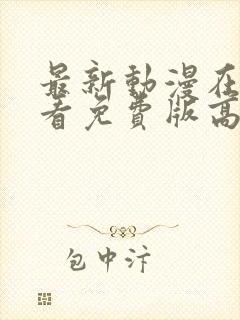 最新動漫在
看免費版高
包中汴